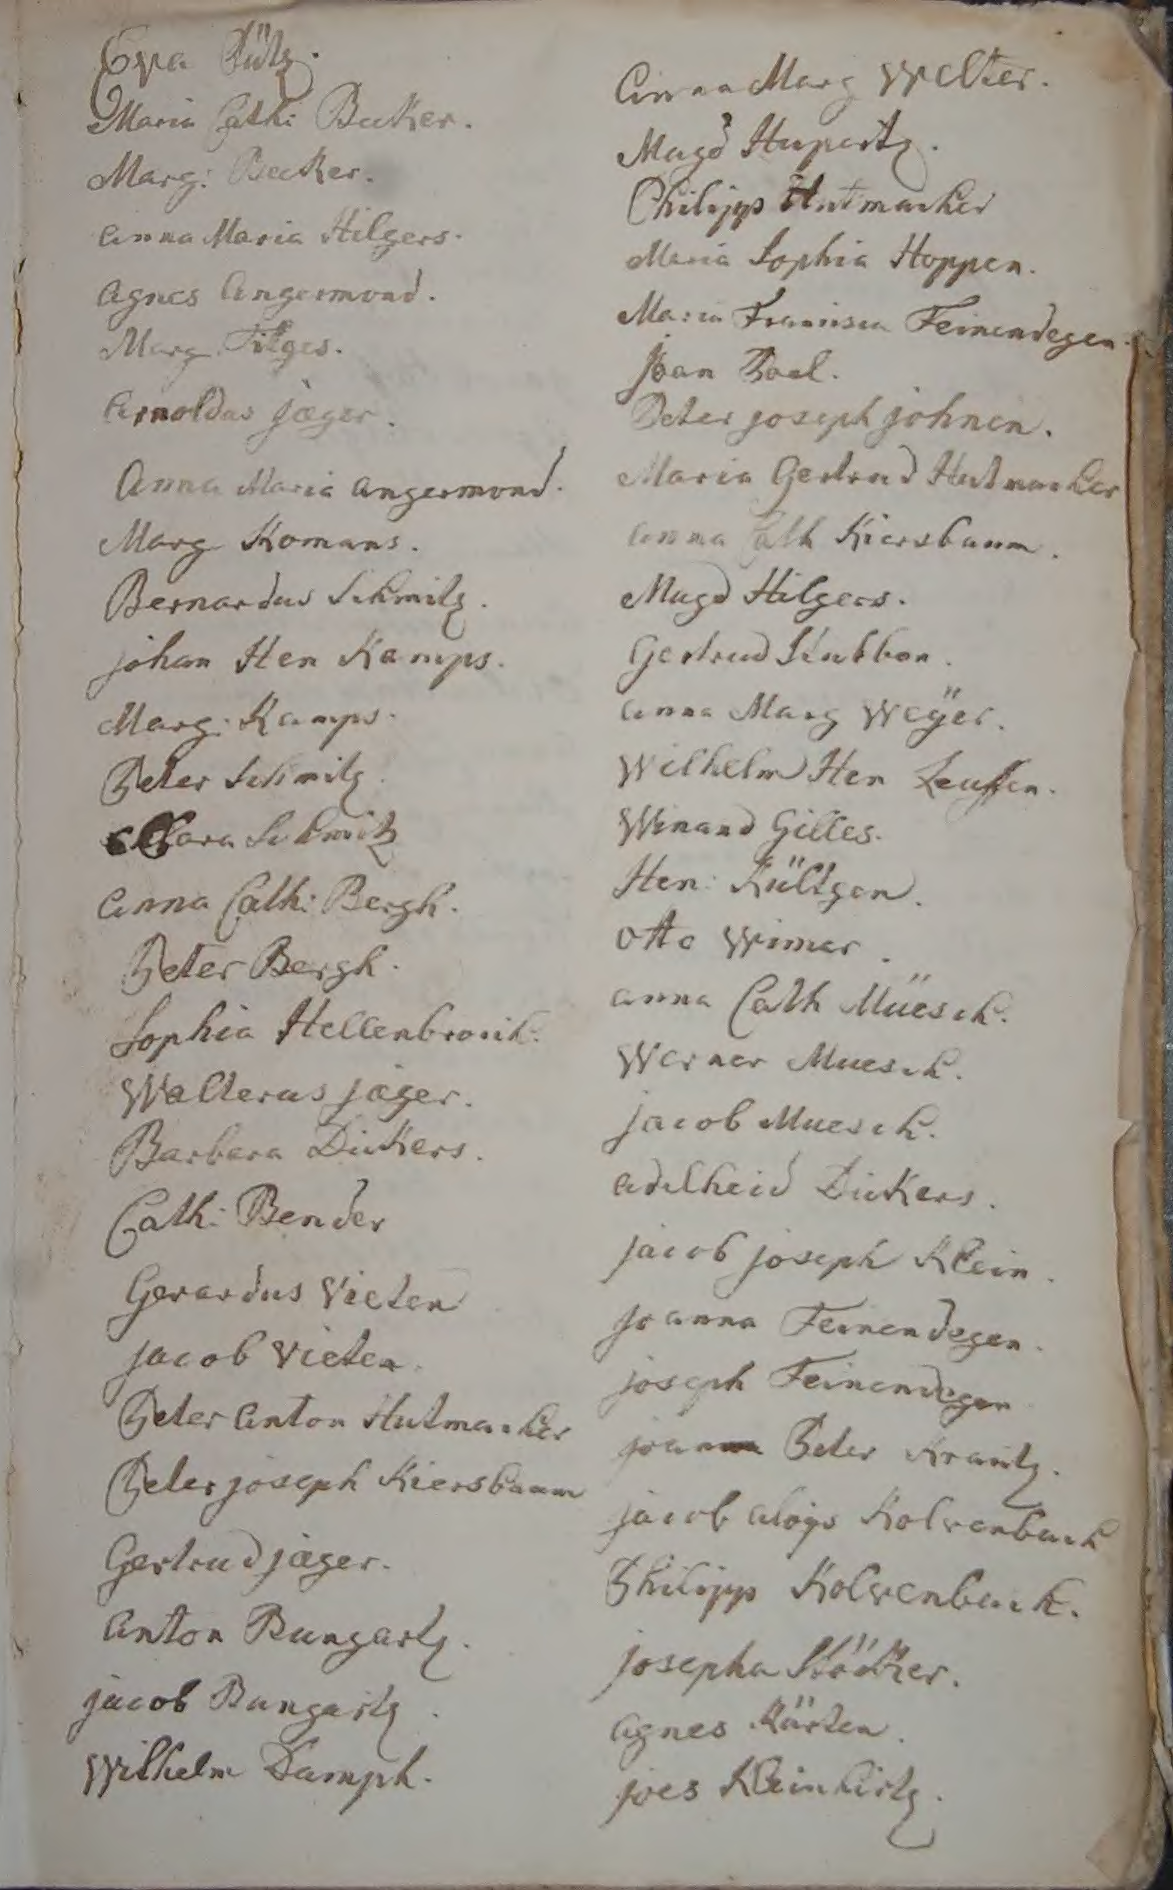 Eva Bütz.
Maria Cath: Becker.
Marg: Becker.
anna Maria Hilgers.
agnes angermond.
Marg Filges.
arnoldus jæger.
Anna Maria angermond.
Marg Komans.
Bernardus Schmitz.
johan Hen Kamps.
Marg: Kamps.
Peter Schmitz.
Clara Schmitz
anna Cath: Bergh.
Peter Bergh.
Sophia Hellenbroich.
Walterus jæger.
Barbara Dickers.
Cath: Bender
Gerardus Vieten
jacob Vieten.
Peter anton Hutmacher
Peter joseph Kiersbaum
Gertrud jæger.
anton Bungartz.
jacob Bungartz.
Wilhelm Damph.
anna Marg Welter.
Magd Hupertz.
Philipp Hutmacher
Maria Sophia Hoppen.
Maria Francisca Feinendegen.
joan Bael.
Peter joseph johnen.
Maria Gertrud Hutmacher
anna Cath Kiersbaum.
Magd Hilgers.
Gertrud Stubben.
anna Marg Weÿer.
Wilhelm Hen Leuffen.
Winand Gilles.
Hen: Kültgen.
otto Wimar.
anna Cath Müesch.
Werner Muesch.
jacob Muesch.
adelheid Dickers.
jacob joseph Klein.
joanna Feinendegen.
joseph Feinendegen
joann Peter Krantz.
jacob aloys Kolvenbach
Philipp Kolvenbach.
josepha Stöcker.
agnes Kürten.
joes Kleinhirtz.